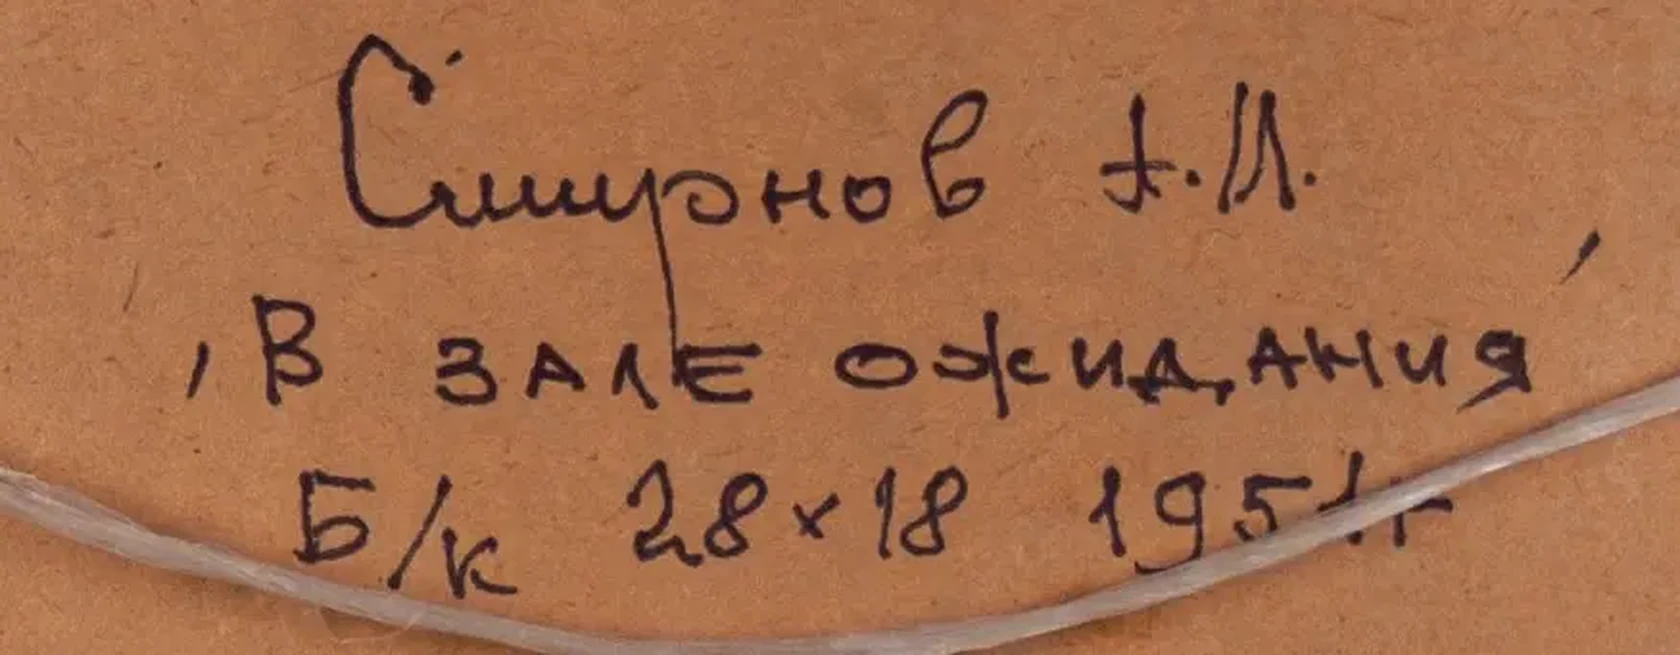 Смирнов А.И.
"В ЗАЛЕ ОЖИДАНИЯ"
Б/к 28×18 1951г